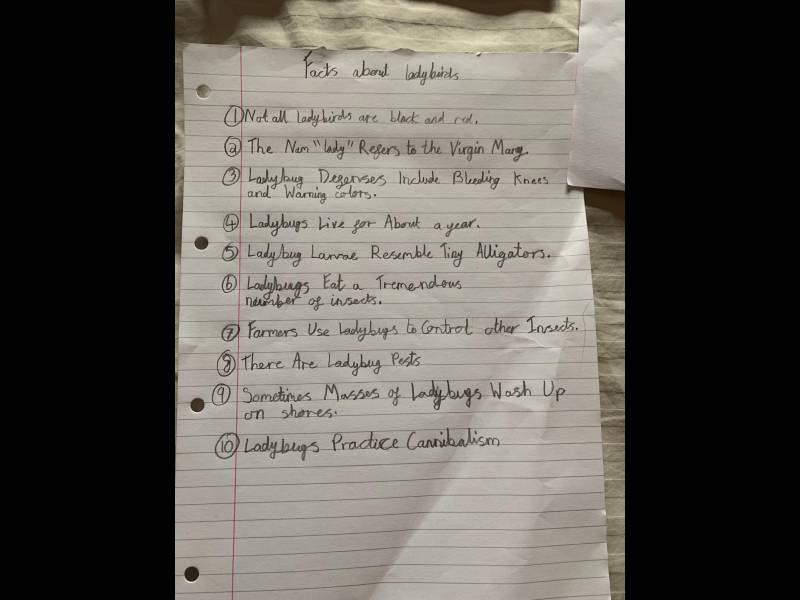 Facts about ladybirds
① Not all ladybirds are black and red.
② The Nam "lady" Refers to the Virgin Mary.
③ Ladybug Defenses Include Bleeding Knees
and Warning colors.
④ Ladybugs Live for About a year.
⑤ Ladybug Larvae Resemble Tiny Alligators.
⑥ Ladybugs Eat a Tremendous
number of insects.
⑦ Farmers Use Ladybugs to Control other Insects.
⑧ There Are Ladybug Pests
⑨ Sometimes Masses of Ladybugs Wash Up
on shores.
⑩ Ladybugs Practice Cannibalism